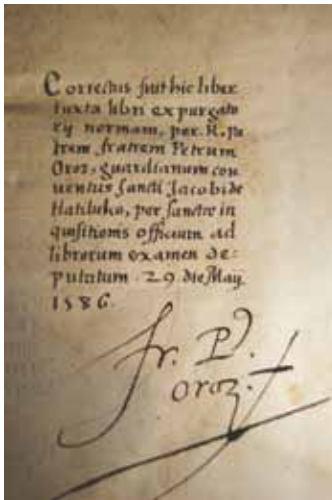 Correctus fuit hic liber
iuxta libri expurgato
rij normam, per. R. pa
trem fratrem Petrum
Oroz, guardianum con
uentus sancti Jacobi de
tlatiluko, per sanctæ in
quisitionis officium ad
librorum examen de=
putatum. 29. die May
1586.
fr. Pº
oroz.